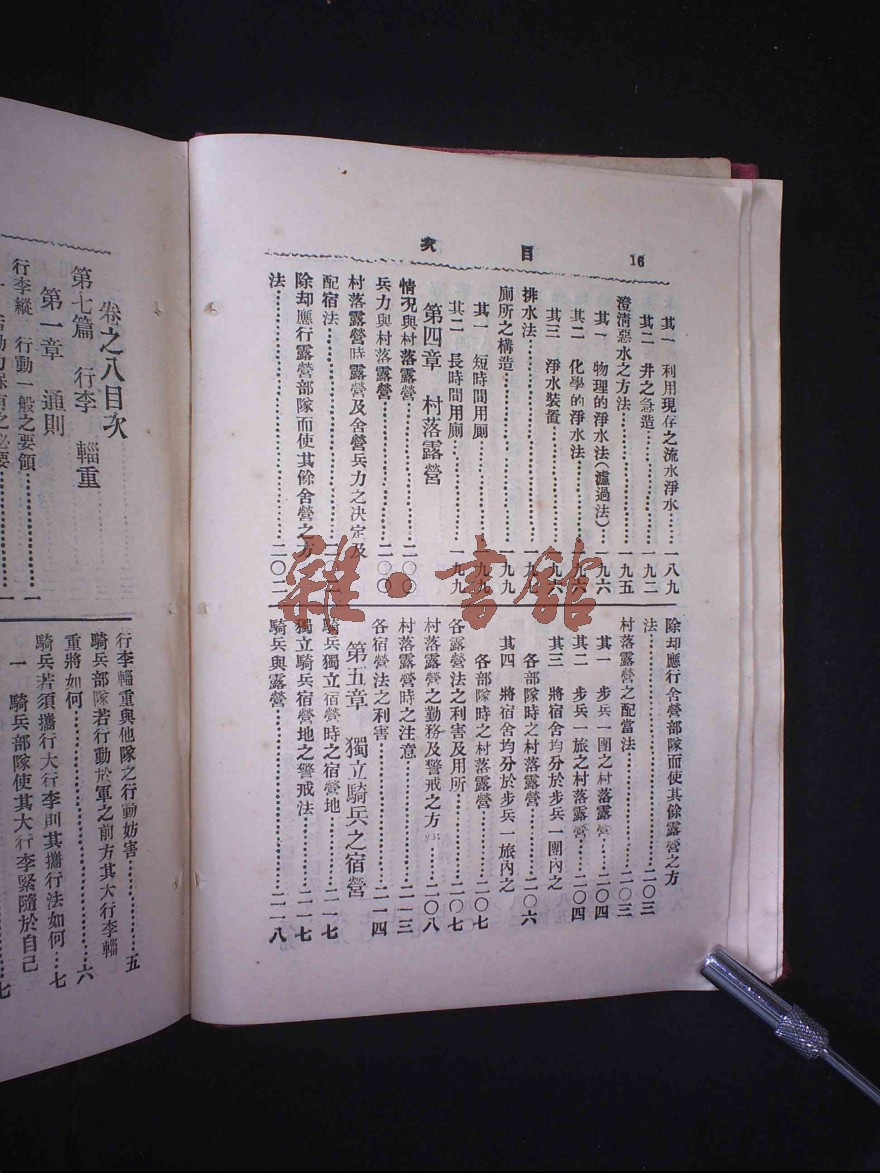 16 目次
其一 利用現存之流水淨水……一八九
其二 井之急造……一九二
澄淸惡水之方法……一九五
其一 物理的淨水法(濾過法)…一九六
其二 化學的淨水法……一九六
其三 淨水裝置……一九六
排水法……一九七
廁所之構造……一九九
其一 短時間用厠……一九九
其二 長時間用厠……一九九
第四章 村落露營
情況與村落露營……二〇〇
兵力與村落露營……二〇〇
村落露營時露營及舍營兵力之決定及
配宿法……二〇二
除却應行露營部隊而使其餘舍營之方
法……二〇二
除却應行舍營部隊而使其餘露營之方
法……二〇三
村落露營之配當法……二〇三
其一 步兵一團之村落露營…二〇四
其二 步兵一旅之村落露營…二〇四
其三 將宿舍均分於步兵一團內之
各部隊時之村落露營……二〇六
其四 將宿舍均分於步兵一旅內之
各部隊時之村落露營……二〇七
各露營法之利害及用所……二〇七
村落露營之勤務及警戒之方法…二〇八
村落露營時之注意……二一三
各宿營法之利害……二一四
第五章 獨立騎兵之宿營
騎兵獨立宿營時之宿營地……二一七
獨立騎兵宿營地之警戒法……二一七
騎兵與露營……二一八
卷之八目次
第七篇 行李 輜重
第一章 通則
行李縱 行動一般之要領……一
行李輜重與他隊之行動妨害……五
騎兵部隊若行動於軍之前方其大行李輜
重將如何……六
騎兵若須攜行大行李則其攜行法如何…七
一 騎兵部隊使其大行李緊隨於自己
……七
雜·書館